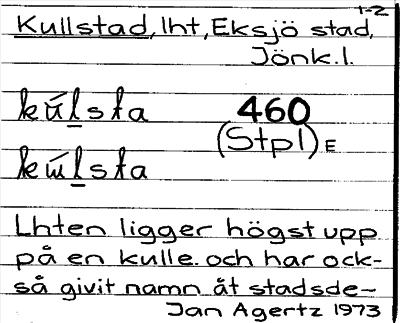 1-2
Kullstad, lht, Eksjö stad,
Jönk. l.
kúl̲sta 460
(Stpl) E
kúl̲sta
Lhten ligger högst upp
på en kulle. och har ock-
så givit namn åt stadsde-
Jan Agertz 1973